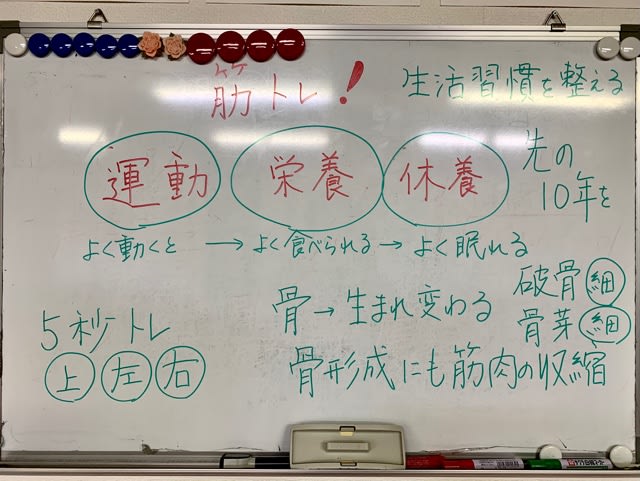 筋トレ!
生活習慣を整える
運動 栄養 休養
先の
10年を
よく動くと → よく食べられる → よく眠れる
骨 → 生まれ変わる
破骨細
骨芽細
5秒トレ
上 左 右
骨形成にも筋肉の収縮